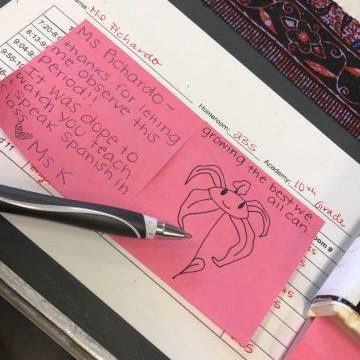 Ms. Pichardo
7:20-8
8:13-9
Homeroom: 225
Academy: 10th Grade
Ms. Pichardo-
thanks for letting
me observe this
Period!!
It was dope to
watch you teach
speak Spanish in
Ms. K
growing the best we
all can